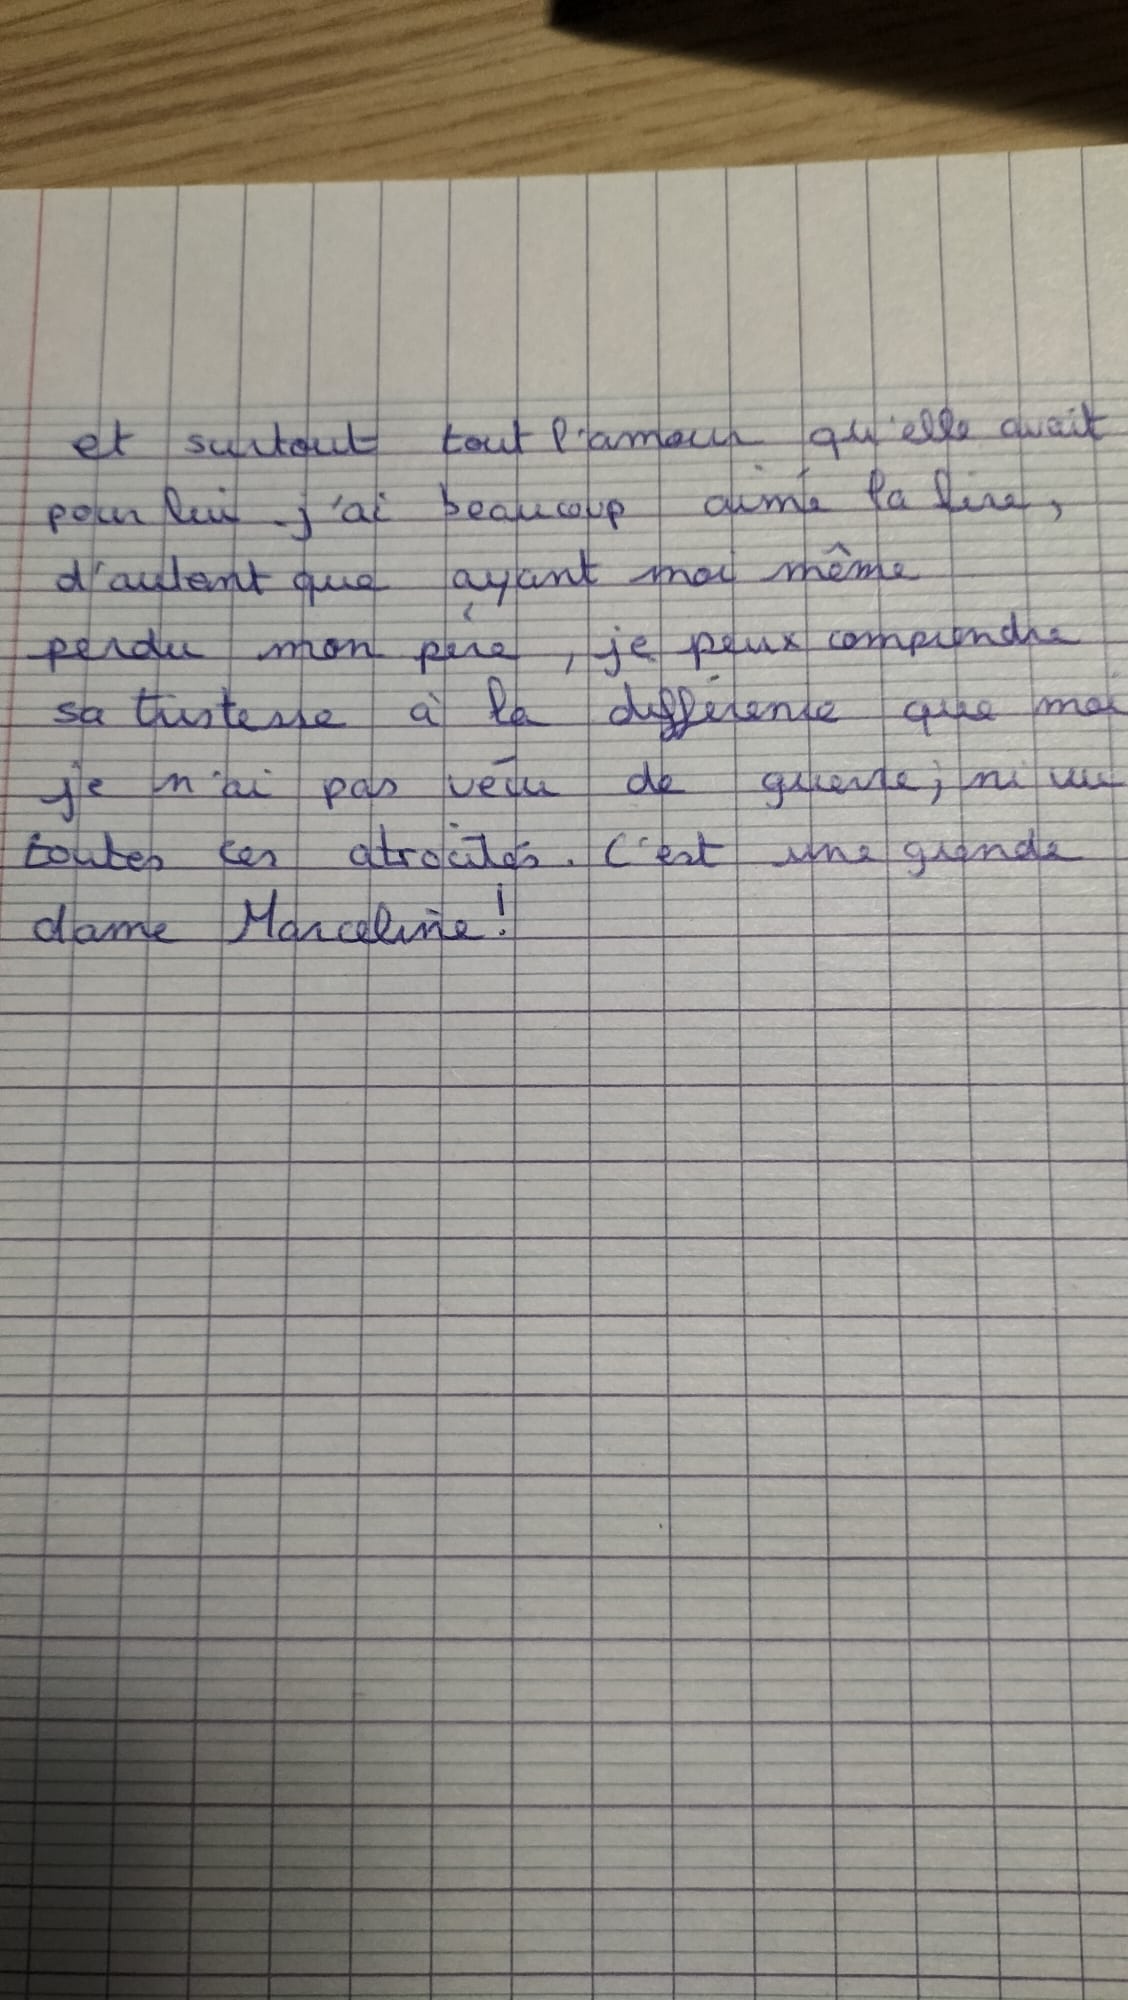 et surtout tout l'amour qu'elle avait
pour lui. j'ai beaucoup aimé la lire,
d'autant que ayant moi même
perdu mon père, je peux comprendre
sa tristesse à la différence que moi
je n'ai pas vécu de guerre, ni vu
toutes ces atrocités. C'est une grande
dame Marceline!